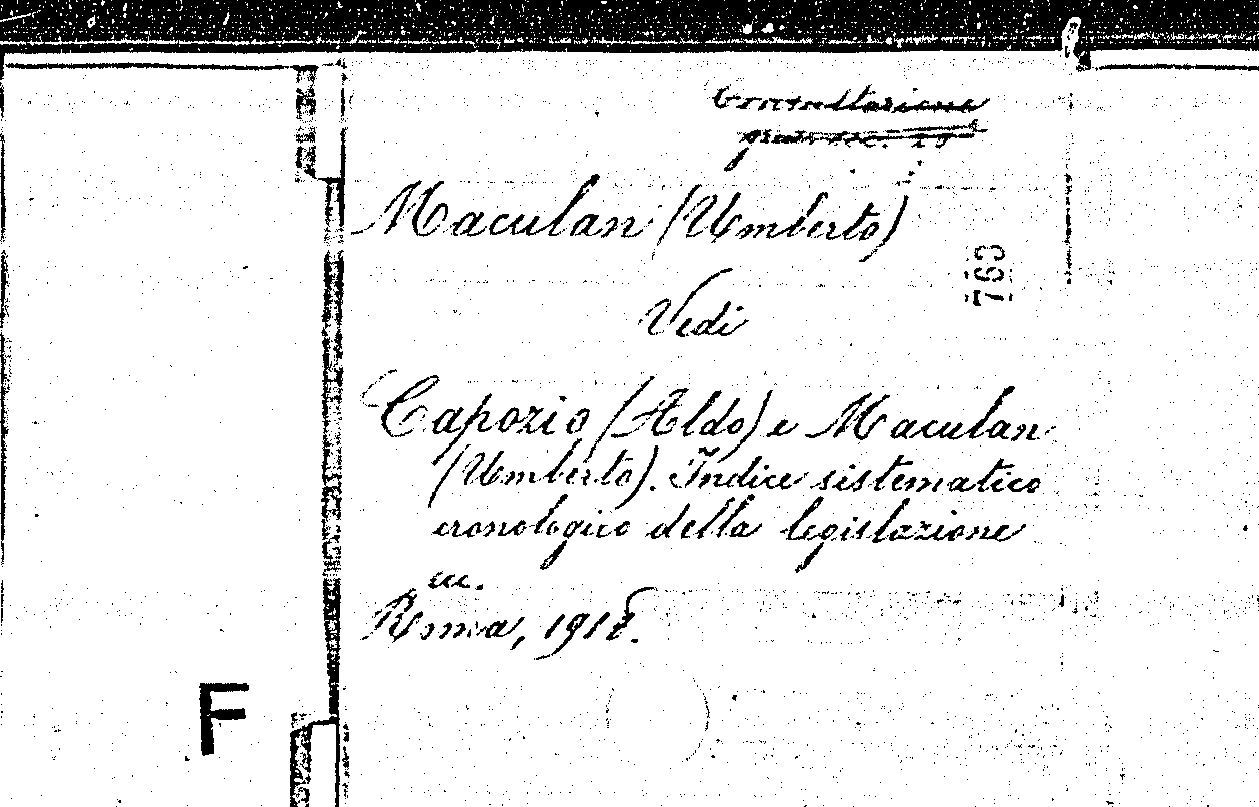 Consultazione
Maculan (Umberto)
763
Vedi
Capozio (Aldo) e Maculan
(Umberto). Indice sistematico
cronologico della legislazione
ecc.
Roma, 1918.
F